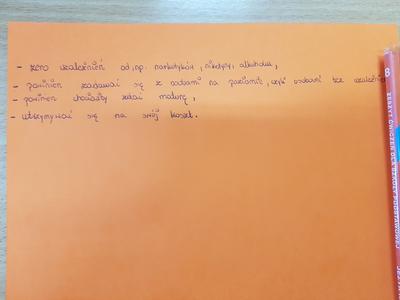 - zero uzależnień od, np. narkotyków, nikotyny, alkoholu,
- powinien zadawać się z osobami na poziomie, czyli osobami bez uzależnień
- powinien chociażby zdać maturę,
- utrzymywać się na swój koszt.
8 ZESZYT ĆWICZEŃ DLA SZKOŁY PODSTAWOWEJ